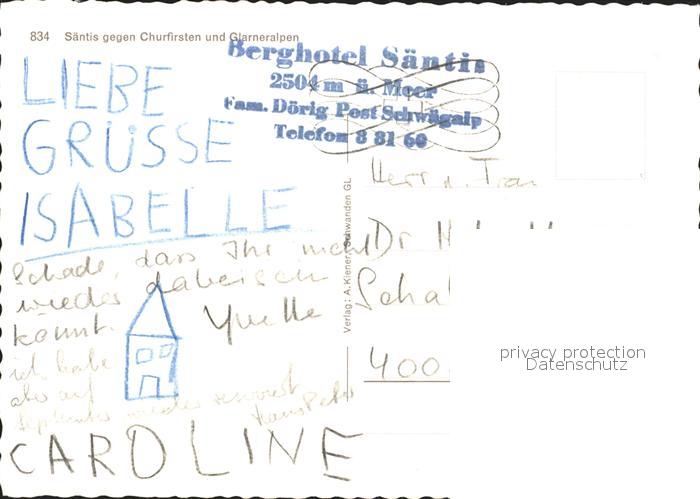 834 Säntis gegen Churfirsten und Glarneralpen
Berghotel Säntis
2504 m ü. Meer
Fam. Dörig Post Schwägalp
Telefon 8 81 60
LIEBE
GRÜSSE
ISABELLE
Schade, dass Ihr nicht
wieder dabeisein
könnt.
Yvette
ich habe
aber auf
September wieder reserviert
Hans Peter
CAROLINE
Verlag: A. Kiener, Schwanden GL
Herr u. Frau
Dr H
Scha
400
privacy protection
Datenschutz